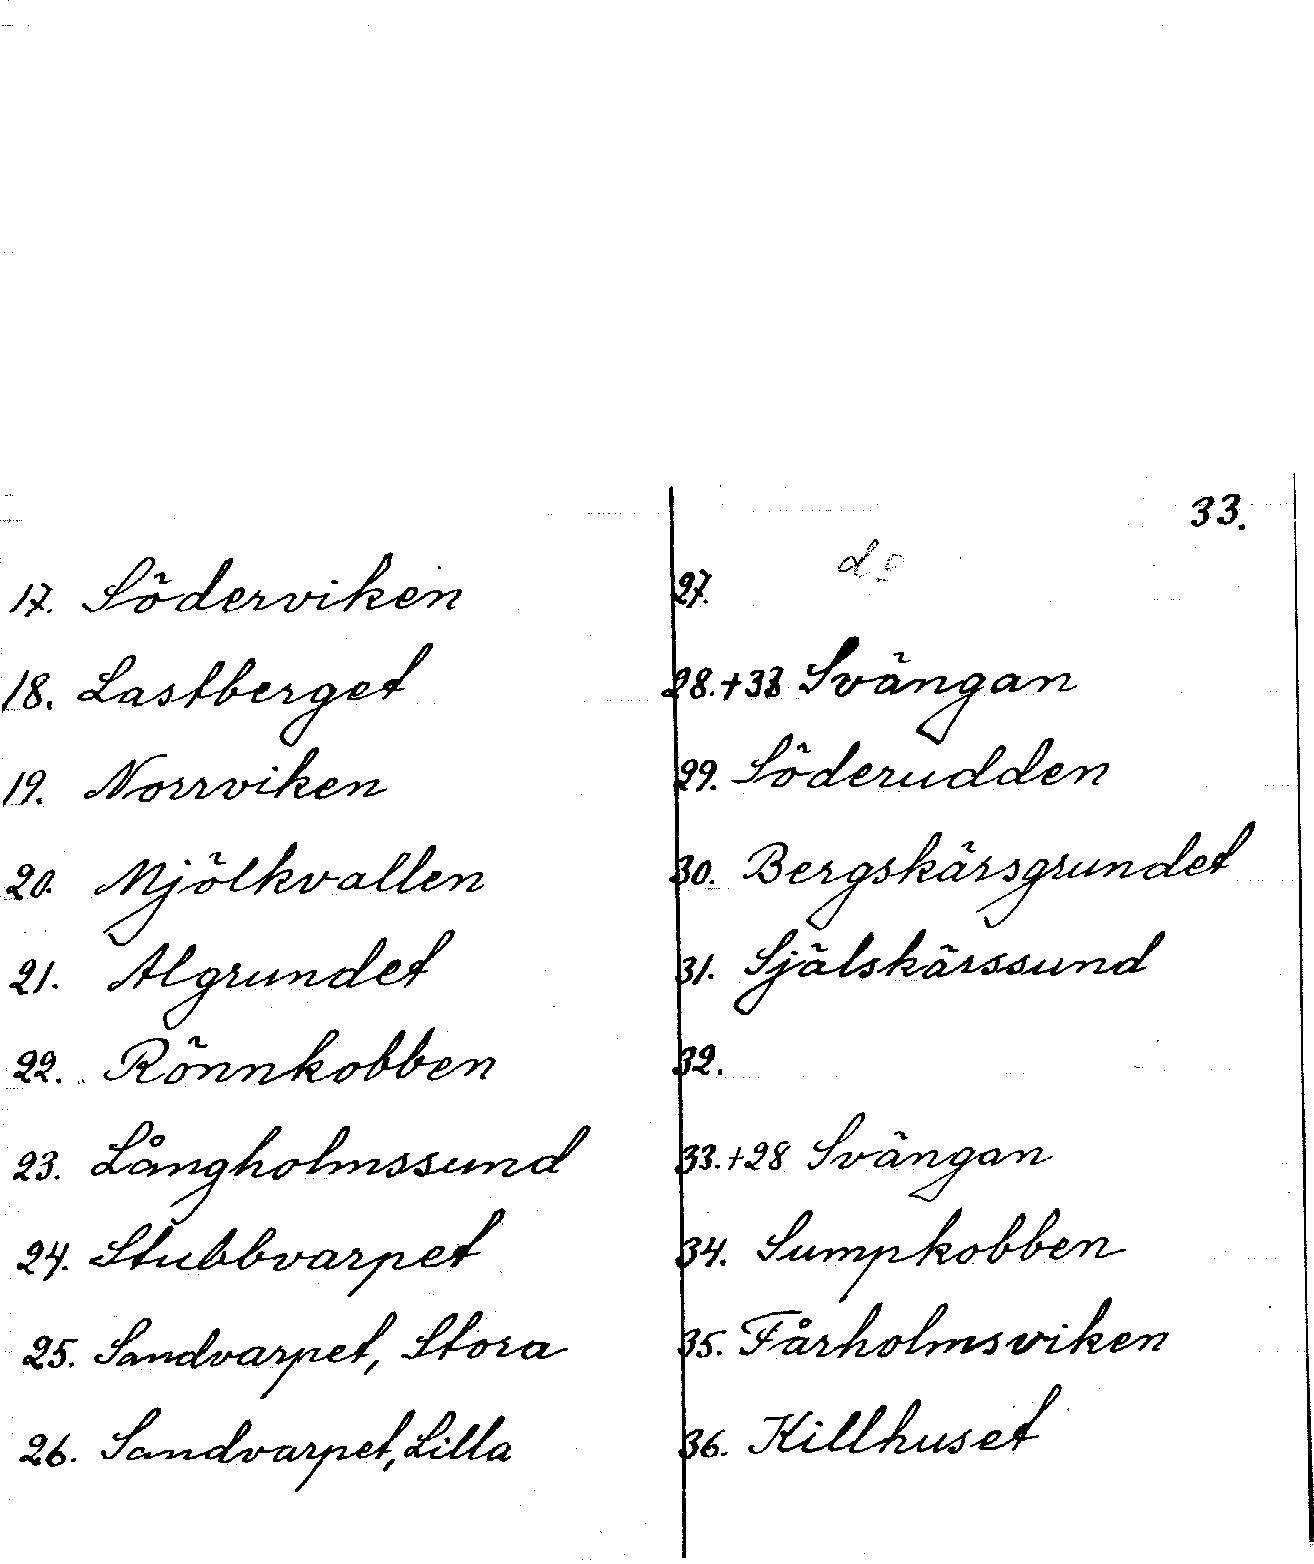 33.
17. Söderviken
18. Lastberget
19. Norrviken
20. Mjölkvallen
21. Algrundet
22. Rönnkobben
23. Långholmssund
24. Stubbvarpet
25. Sandvarpet, Stora
26. Sandvarpet, Lilla
do
27.
28.+33 Svängan
29. Söderudden
30. Bergskärsgrundet
31. Själskärssund
32.
33.+28 Svängan
34. Sumpkobben
35. Fårholmsviken
36. Killhuset